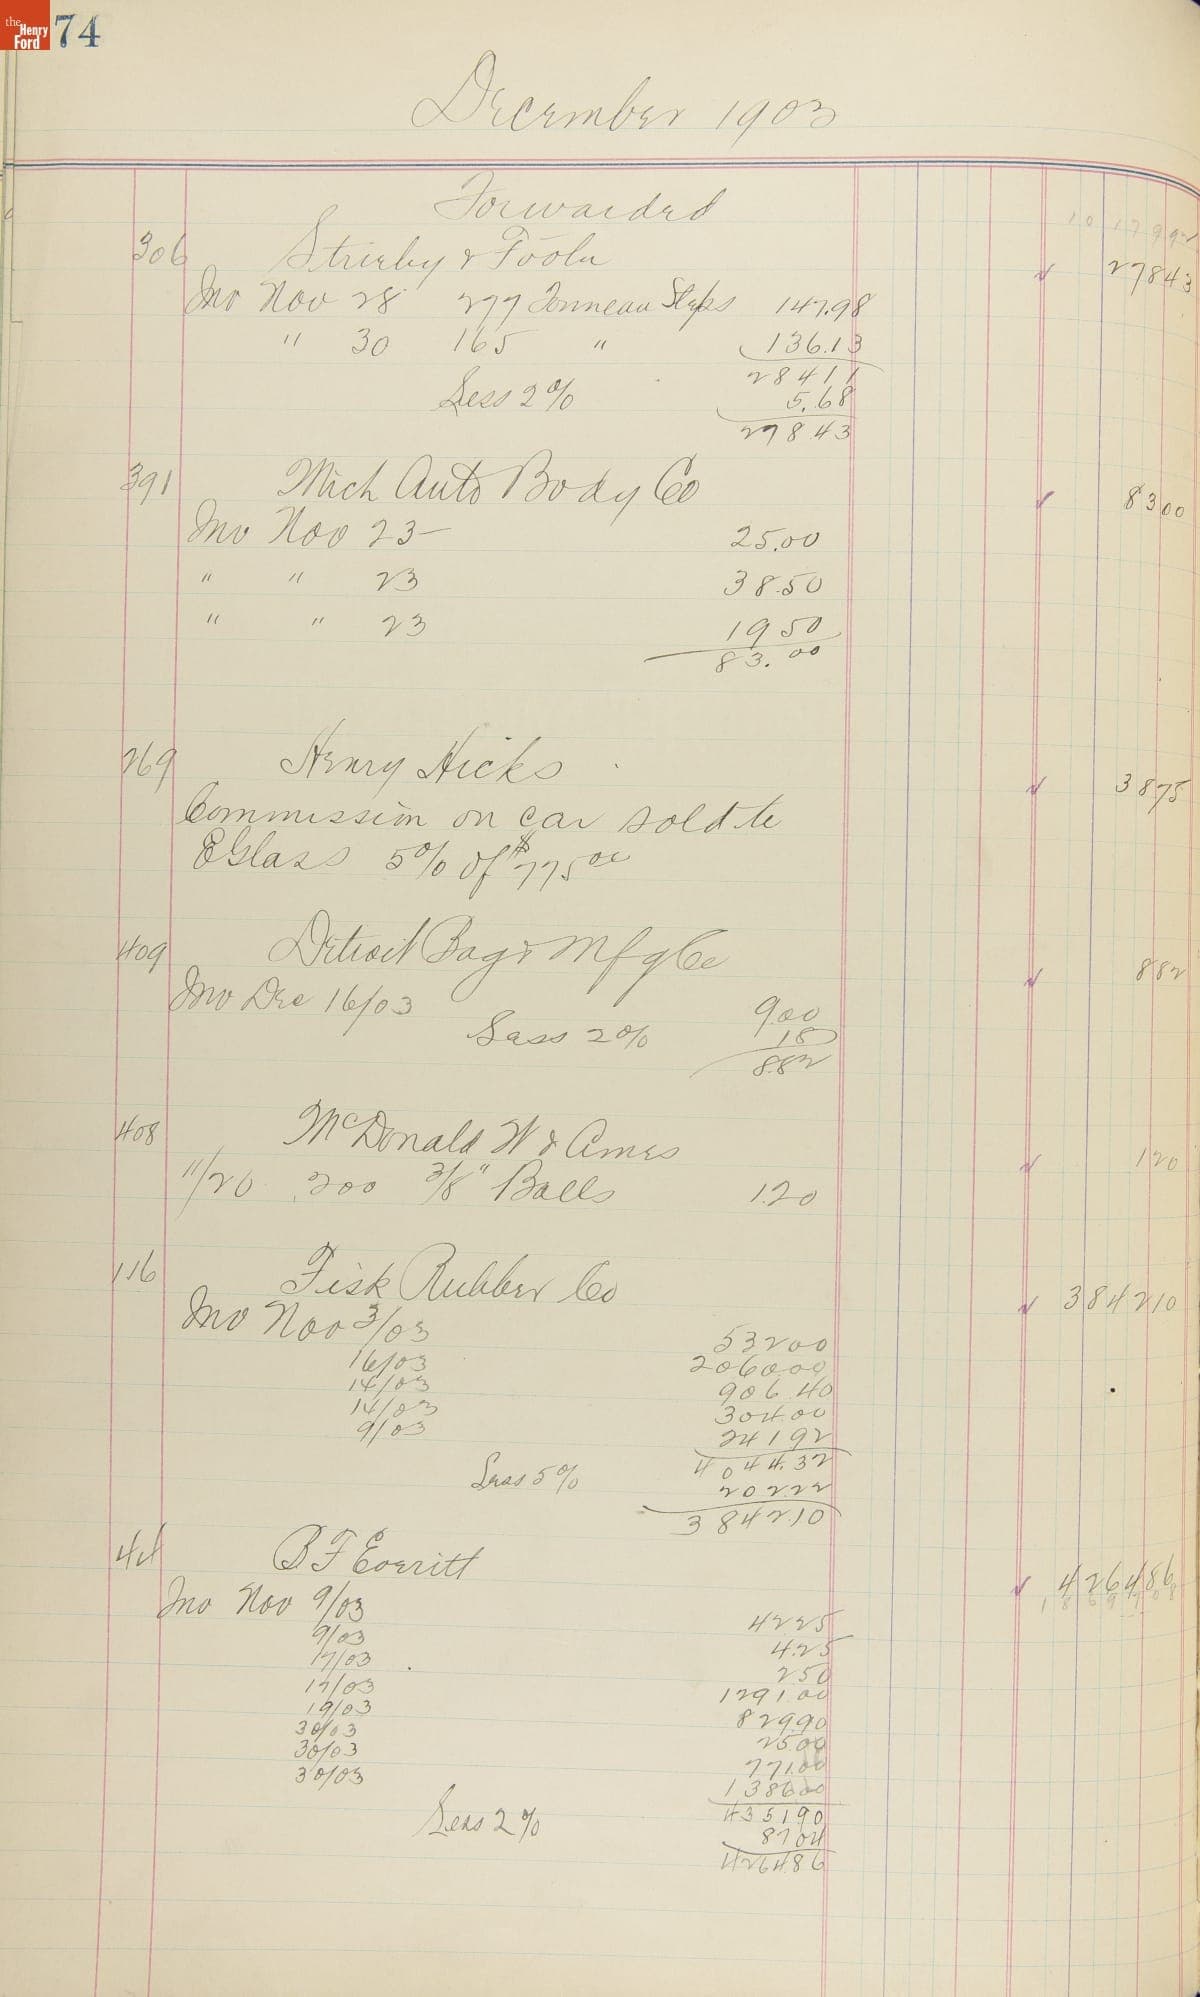 the Henry Ford
74
December 1903
Forwarded 10 179 92
306 Strieby & Foote 278 43
Inv Nov 28 277 Tonneau Steps 147.98
" 30 165 " 136.13
284 11
Less 2% 5.68
278 43
391 Mich Auto Body Co 83 00
Inv Nov 23 25.00
" " 23 38.50
" " 23 19 50
83.00
269 Henry Hicks 38 75
Commission on car sold to
E Glass 5% of $775 00
409 Detroit Bag & Mfg Co 8 82
Inv Dec 16/03 9.00
Less 2% 18
8.82
408 McDonald W & Ames 1 20
11/20 200 3/8" Balls 1.20
116 Fisk Rubber Co 3842 10
Inv Nov 3/03 532 00
16/03 2060 00
14/03 906 40
14/03 304.00
9/03 241 92
4044.32
Less 5% 202.22
3842.10
44 B F Everitt 4264 86
Inv Nov 9/03 42 25
9/03 4.25
17/03 2 50
17/03 1291.00
19/03 829.90
30/03 25.00
30/03 771.00
30/03 1386 00
4351 90
Less 2% 87 04
4264.86